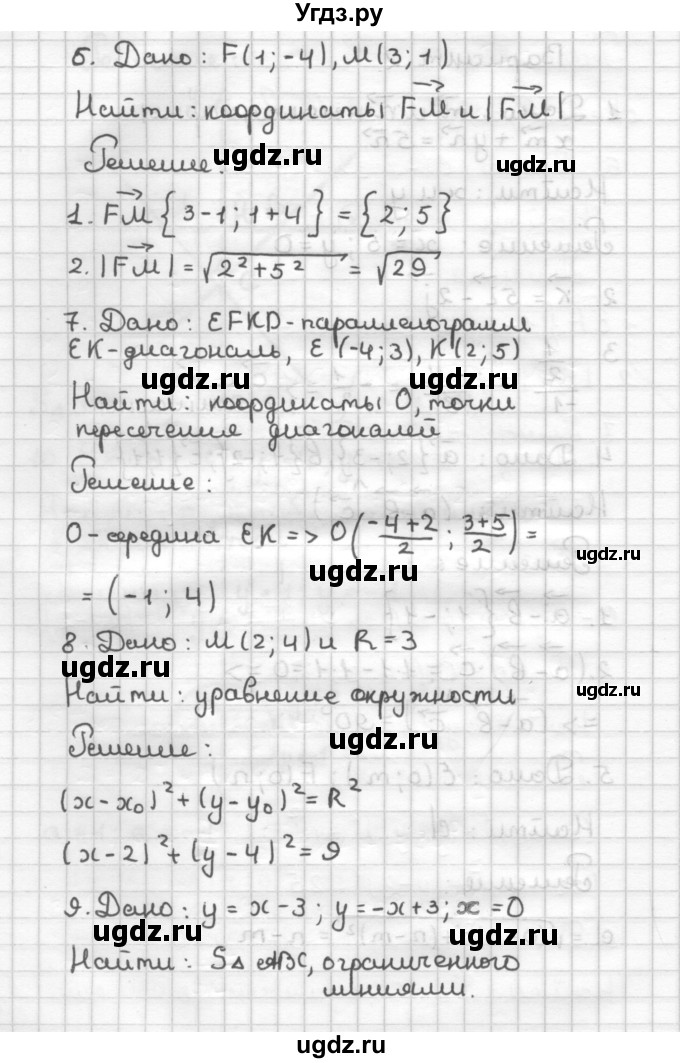 Угдз.ру
6. Дано: F(1; -4), M(3; 1)
Найти: координаты FM и |FM|
Решение:
ugdz.ru ugdz.ru
1. FM { 3-1; 1+4 } = { 2; 5 }
2. |FM| = √2² + 5² = √29
7. Дано: EFKD - параллелограмм
EK - диагональ, E (-4; 3), K (2; 5)
ugdz.ru ugdz.ru
Найти: координаты O, точки
пересечения диагоналей
Решение:
O - середина EK => O (-4+2/2; 3+5/2) =
ugdz.ru ugdz.ru
= (-1; 4)
8. Дано: M(2; 4) и R = 3
ugdz.ru ugdz.ru
Найти: уравнение окружности
Решение:
ugdz.ru
(x - x₀)² + (y - y₀)² = R²
(x - 2)² + (y - 4)² = 9
9. Дано: y = x - 3; y = -x + 3; x = 0
ugdz.ru ugdz.ru
Найти: S△ ABC, ограниченного
линиями.
ugdz.ru